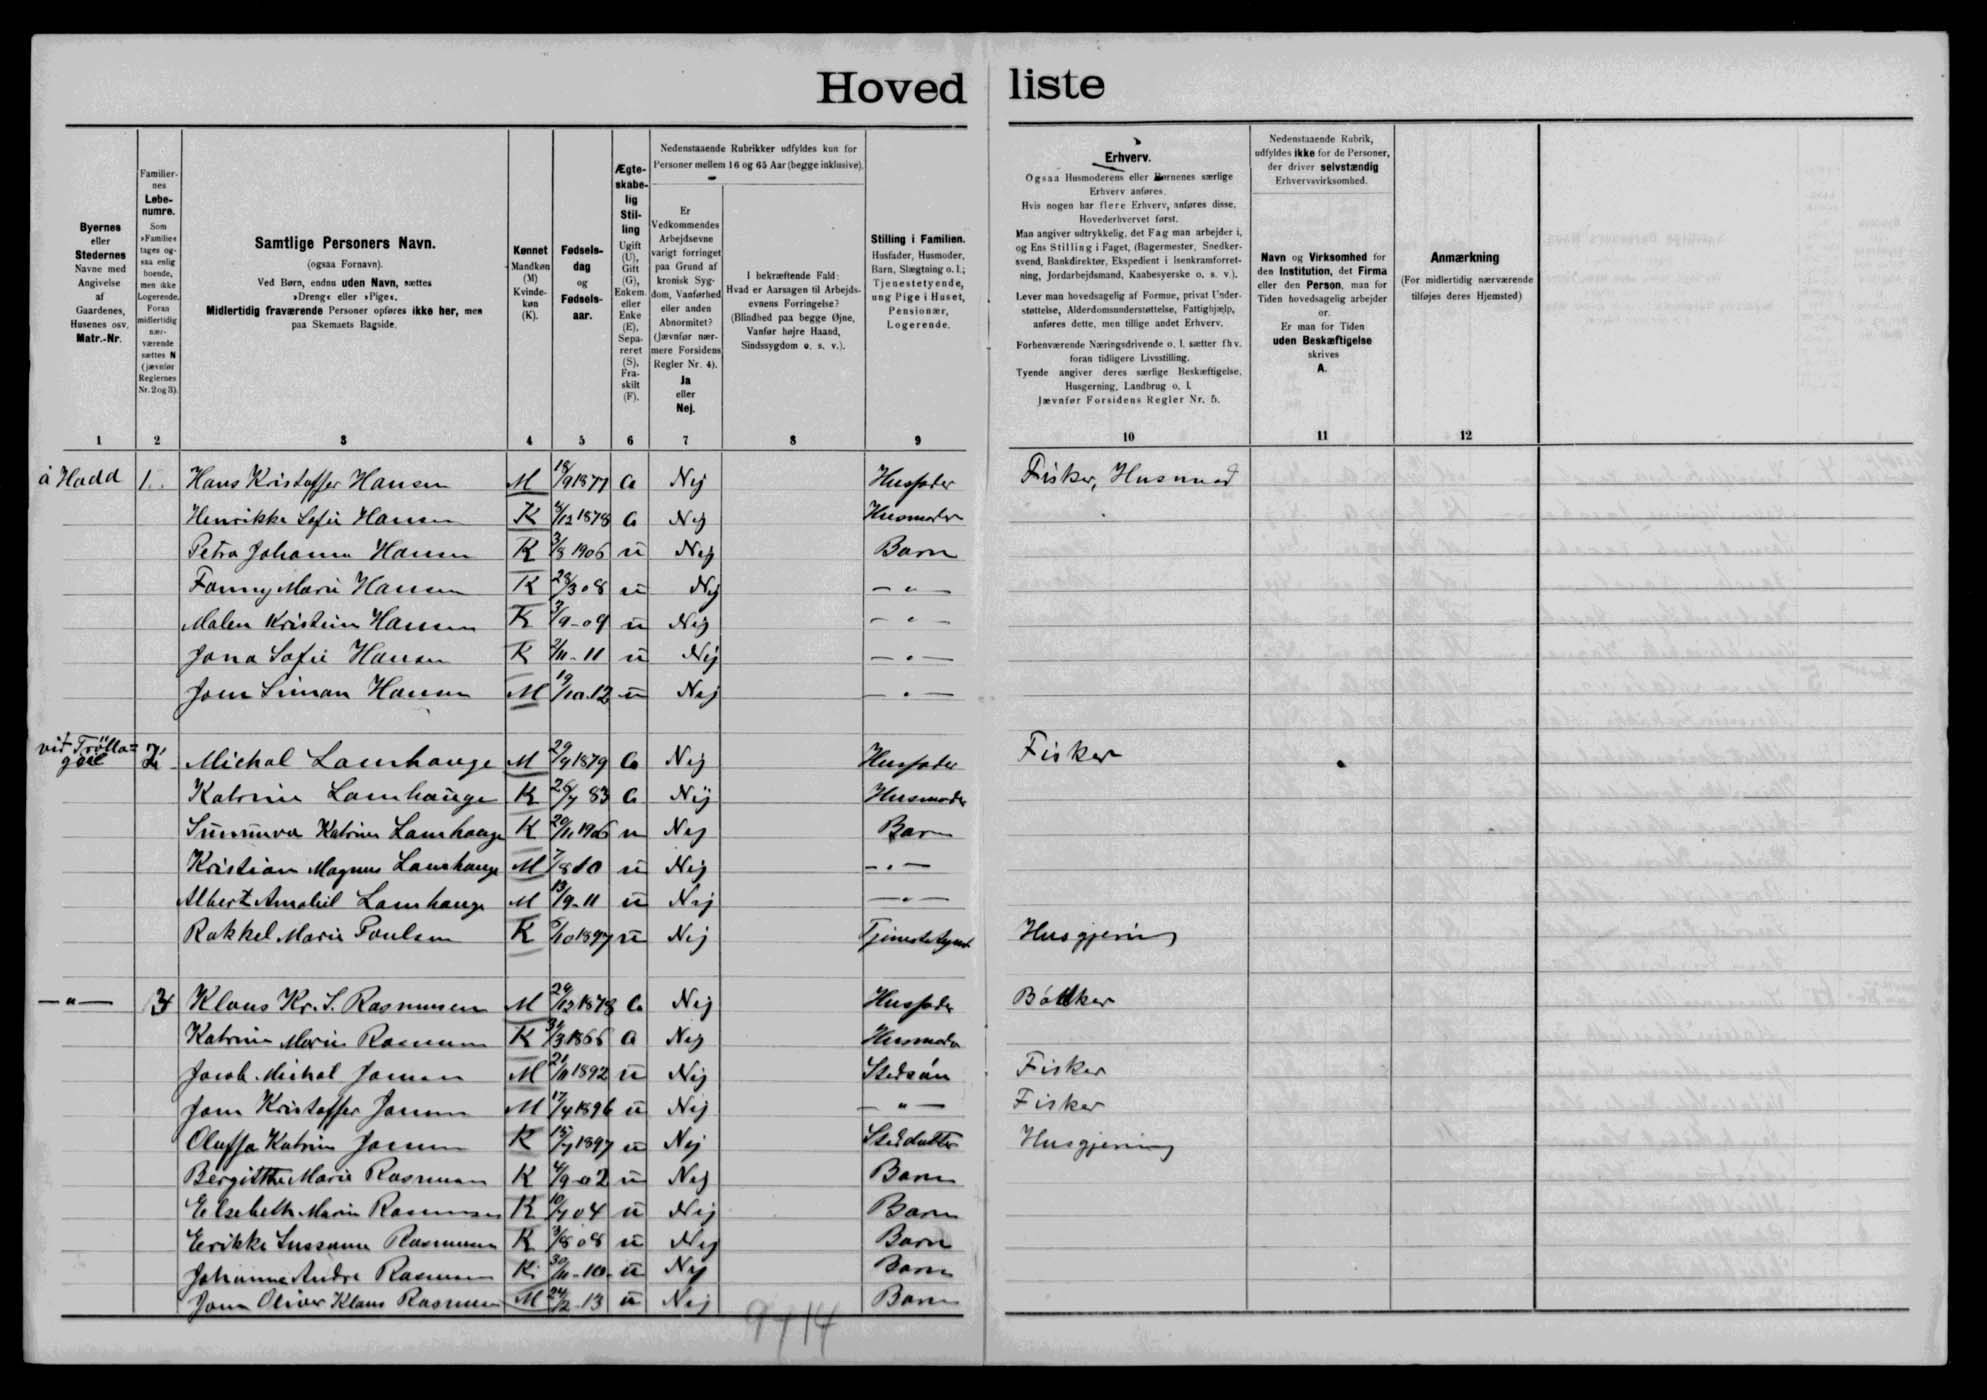 Hovedliste
Byernes eller Stedernes Navne med Angivelse af Gaardenes, Husenes osv. Matr.-Nr.
Familiernes Løbenumre. Som »Familie« tages ogsaa enlig boende, men ikke Logerende. Foran midlertidig nærværende sættes N (jævnfør Reglernes Nr. 2 og 3).
Samtlige Personers Navn.
(ogsaa Fornavn).
Ved Børn, endnu uden Navn, sættes »Dreng« eller »Pige«.
Midlertidig fraværende Personer opføres ikke her, men paa Skemaets Bagside.
Kønnet Mandkøn (M) Kvindekøn (K).
Fødselsdag og Fødselsaar.
Ægteskabelig Stilling Ugift (U), Gift (G), Enkem. eller Enke (E), Separeret (S), Fraskilt (F).
Nedenstaaende Rubrikker udfyldes kun for Personer mellem 16 og 65 Aar (begge inklusive).
Er Vedkommendes Arbejdsevne varigt forringet paa Grund af kronisk Sygdom, Vanførhed eller anden Abnormitet? (Jævnfør nærmere Forsidens Regler Nr. 4). Ja eller Nej.
I bekræftende Fald: Hvad er Aarsagen til Arbejdsevnens Forringelse? (Blindhed paa begge Øjne, Vanfør højre Haand, Sindssygdom o. s. v.).
Stilling i Familien. Husfader, Husmoder, Barn, Slægtning o. l.; Tjenestetyende, ung Pige i Huset, Pensionær, Logerende.
Erhverv.
Ogsaa Husmoderens eller Børnenes særlige Erhverv anføres.
Hvis nogen har flere Erhverv, anføres disse, Hovederhvervet først.
Man angiver udtrykkelig, det Fag man arbejder i, og Ens Stilling i Faget, (Bagermester, Snedkersvend, Bankdirektør, Ekspedient i Isenkramforretning, Jordarbejdsmand, Kaabesyerske o. s. v.).
Lever man hovedsagelig af Formue, privat Understøttelse, Alderdomsunderstøttelse, Fattighjælp, anføres dette, men tillige andet Erhverv.
Forhenværende Næringsdrivende o. l. sætter fhv. foran tidligere Livsstilling.
Tyende angiver deres særlige Beskæftigelse, Husgerning, Landbrug o. l.
Jævnfør Forsidens Regler Nr. 5.
Nedenstaaende Rubrik, udfyldes ikke for de Personer, der driver selvstændig Erhvervsvirksomhed.
Navn og Virksomhed for den Institution, det Firma eller den Person, man for Tiden hovedsagelig arbejder or.
Er man for Tiden uden Beskæftigelse skrives A.
Anmærkning
(For midlertidig nærværende tilføjes deres Hjemsted)
1 2 3 4 5 6 7 8 9 10 11 12
á Hadd 1. Hans Kristoffer Hansen M 18/9 1877 G Nej Husfader Fisker, Husmand
Henrikke Sofie Hansen K /12 1878 G Nej Husmoder
Petra Johanna Hansen K 3/8 1906 u Nej Barn
Fanny Marie Hansen K 28/3 08 u Nej — " —
Malen Kristine Hansen K 3/9 - 09 u Nej — " —
Jona Sofie Hansen K 2/11 - 11 u Nej — " —
Jens Simon Hansen M 19/10 - 12 u Nej — " —
við Trölla=
gøil 2 Michal Lamhauge M 29/4 1879 G Nej Husfader Fisker
Katrine Lamhauge K 28/7 83 G Nej Husmoder
Sunnuva Katrine Lamhauge K 20/11 1906 u Nej Barn
Kristian Magnus Lamhauge M 7/8 10 u Nej — " —
Albert Lamhauge M 13/9 - 11 u Nej — " —
Rakkel Marie Poulsen K /10 1897 u Nej Tjenestetyende Husgjerning
— " — 3 Klaus Kr. S. Rasmussen M 29/12 1878 G Nej Husfader Bödker
Katrine Marie Rasmussen K 31/3 1866 G Nej Husmoder
Jacob Michal Jensen M 21/11 1892 u Nej Stedsön Fisker
Jens Kristoffer Jensen M 17/4 1896 u Nej — " — Fisker
Oluffa Katrine Jensen K 15/7 1897 u Nej Steddatter Husgjerning
Bergitthe Marie Rasmussen K 4/9 - 02 u Nej Barn
Elsebeth Marie Rasmussen K 10/7 04 u Nej Barn
Erikke Sussanne Rasmussen K 3/8 08 u Nej Barn
Johanne Andre Rasmussen K 30/11 - 10 - u Nej Barn
Jens Oliver Klaus Rasmussen M 24/2 - 13 u Nej Barn
9414